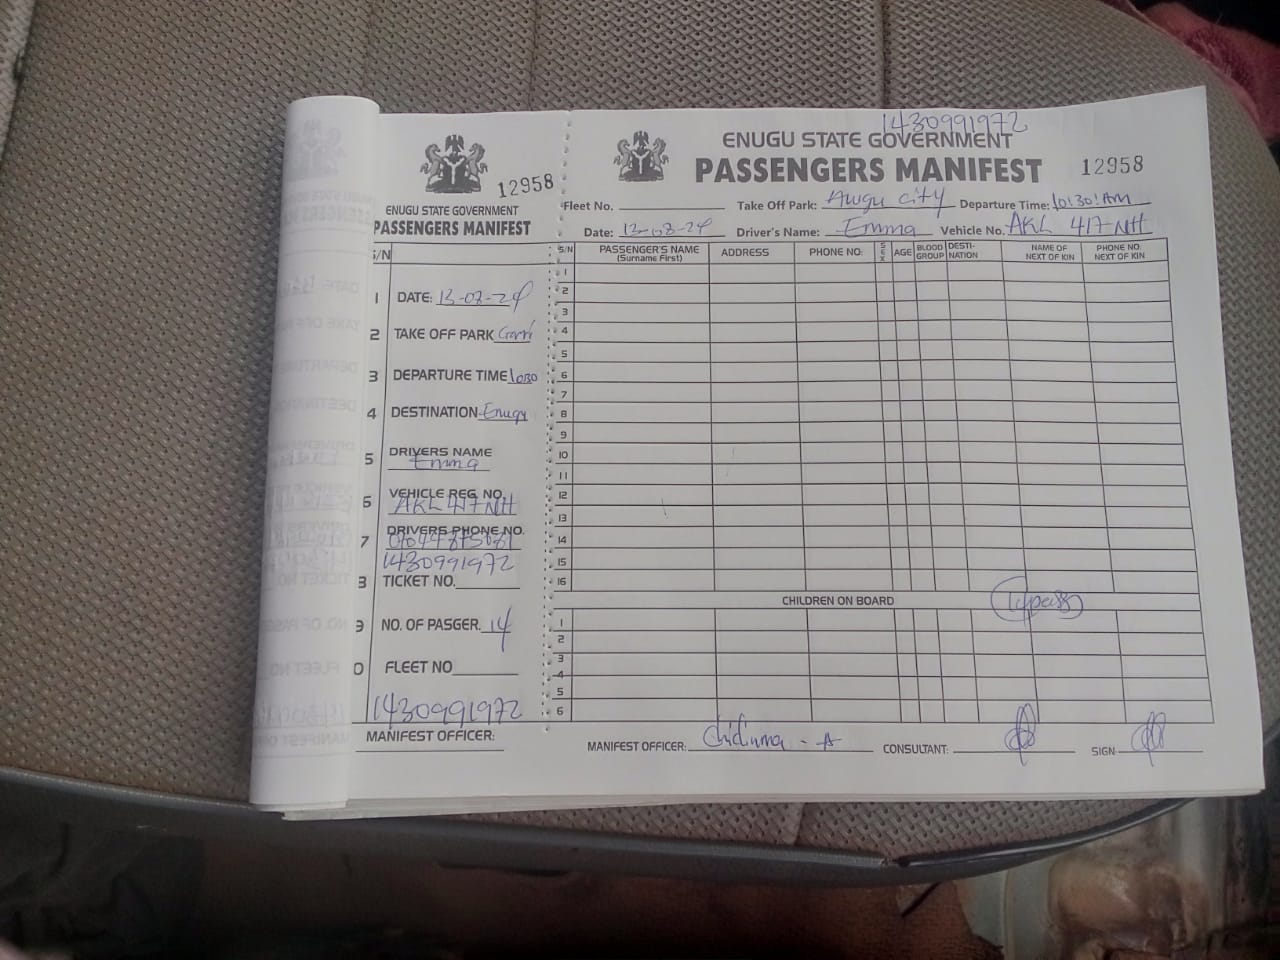 12958
ENUGU STATE GOVERNMENT
PASSENGERS MANIFEST
S/N
1 DATE: 13-08-24
2 TAKE OFF PARK
3 DEPARTURE TIME 1030
4 DESTINATION Enugu
5 DRIVERS NAME
Emma
6 VEHICLE REG. NO.
AKL 417 NH
7 DRIVERS PHONE NO.
1430991972
8 TICKET NO.
9 NO. OF PASGER. 14
0 FLEET NO
1430991972
MANIFEST OFFICER:
1430991972
ENUGU STATE GOVERNMENT
PASSENGERS MANIFEST 12958
Fleet No. Take Off Park: Awgu city Departure Time: 10:30:AM
Date: 13-08-24 Driver's Name: Emma Vehicle No. AKL 417 NH
S/N PASSENGER'S NAME (Surname First) ADDRESS PHONE NO: SEX AGE BLOOD GROUP DESTI-NATION NAME OF NEXT OF KIN PHONE NO. NEXT OF KIN
1
2
3
4
5
6
7
8
9
10
11
12
13
14
15
16
CHILDREN ON BOARD
1
2
3
4
5
6
MANIFEST OFFICER: Chidinma - A CONSULTANT: SIGN